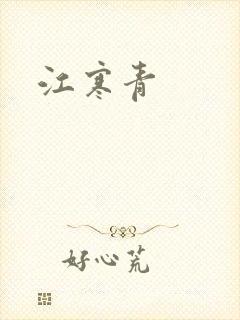 江寒青
好心荒